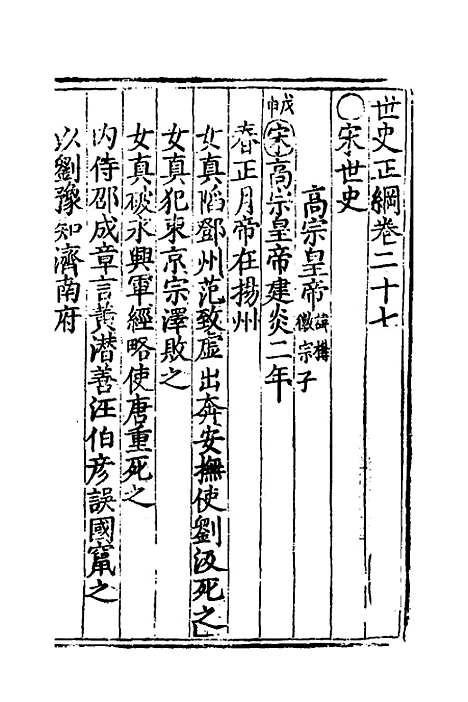 世史正綱卷二十七
○宋世史
高宗皇帝諱構徽宗子
戊申宋高宗皇帝建炎二年
春正月帝在揚州
女真陷鄧州范致虛出奔安撫使劉汲死之
女真犯東京宗澤敗之
女真破永興軍經略使唐重死之
內侍邵成章言黃潛善汪伯彥誤國竄之
以劉豫知濟南府